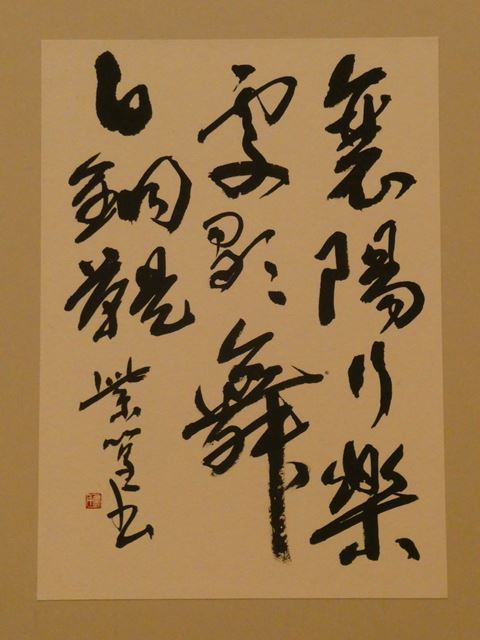 襄陽行樂
處歌舞
白銅鞮
紫篁書